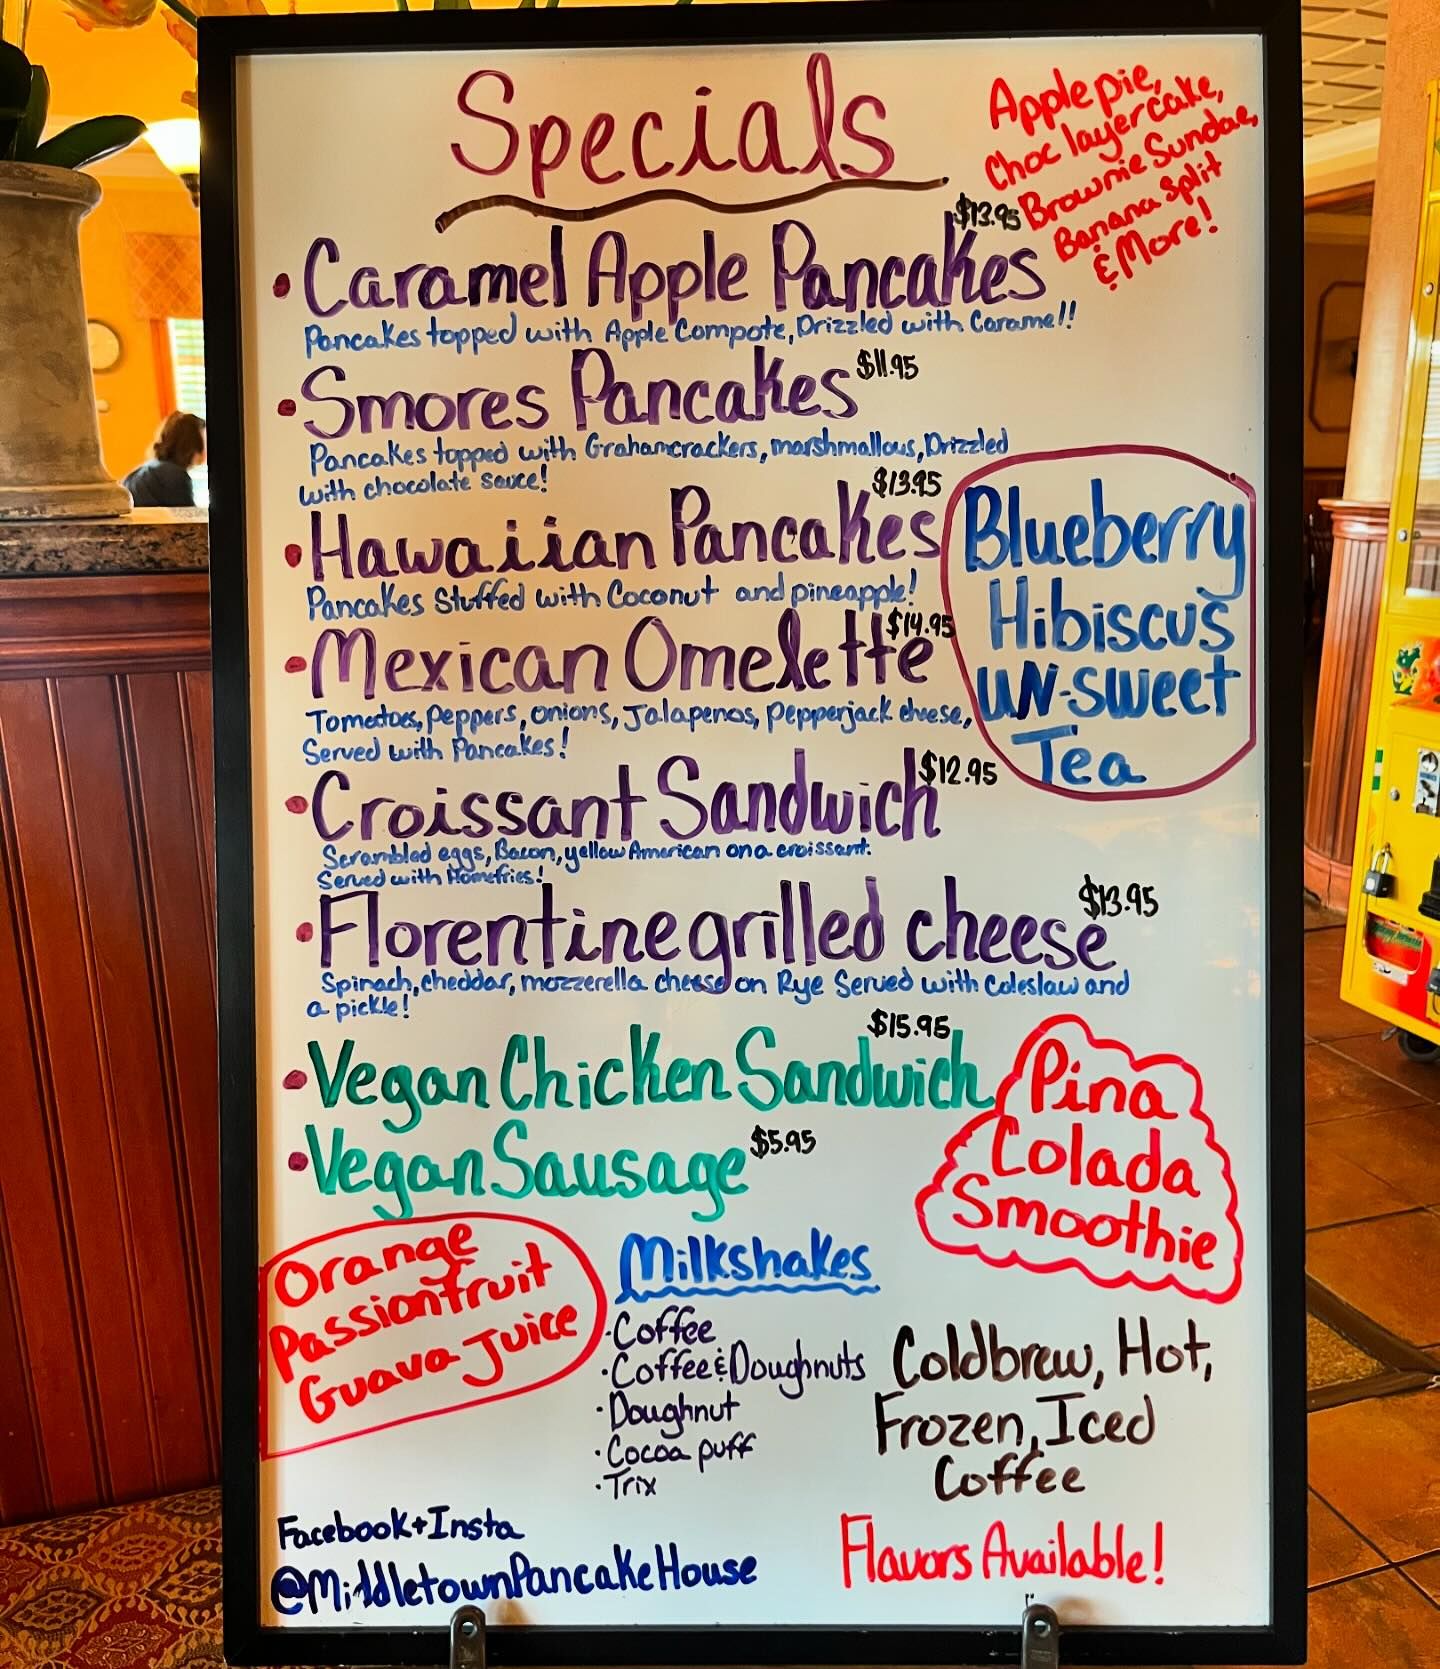 Specials
Apple pie,
Choc layer cake,
Brownie Sundae,
Banana Split
& More!
$13.95
• Caramel Apple Pancakes
Pancakes topped with Apple Compote, Drizzled with Caramel!
• Smores Pancakes $11.95
Pancakes topped with Grahamcrackers, marshmallows, Drizzled
with chocolate sauce!
$13.95
• Hawaiian Pancakes
Pancakes Stuffed with Coconut and pineapple!
$14.95
• Mexican Omelette
Tomatoes, peppers, onions, Jalapenos, pepperjack cheese,
Served with Pancakes!
Blueberry
Hibiscus
UN-sweet
Tea
$12.95
• Croissant Sandwich
Scrambled eggs, Bacon, yellow American on a croissant.
Served with Homefries!
$13.95
• Florentine grilled cheese
Spinach, cheddar, mozzerella cheese on Rye Served with Coleslaw and
a pickle!
$15.95
• Vegan Chicken Sandwich
• Vegan Sausage $5.95
Pina
Colada
Smoothie
Orange
Passionfruit
Guava Juice
Milkshakes
• Coffee
• Coffee & Doughnuts
• Doughnut
• Cocoa puff
• Trix
Coldbrew, Hot,
Frozen, Iced
Coffee
Flavors Available!
Facebook + Insta
@MiddletownPancakeHouse